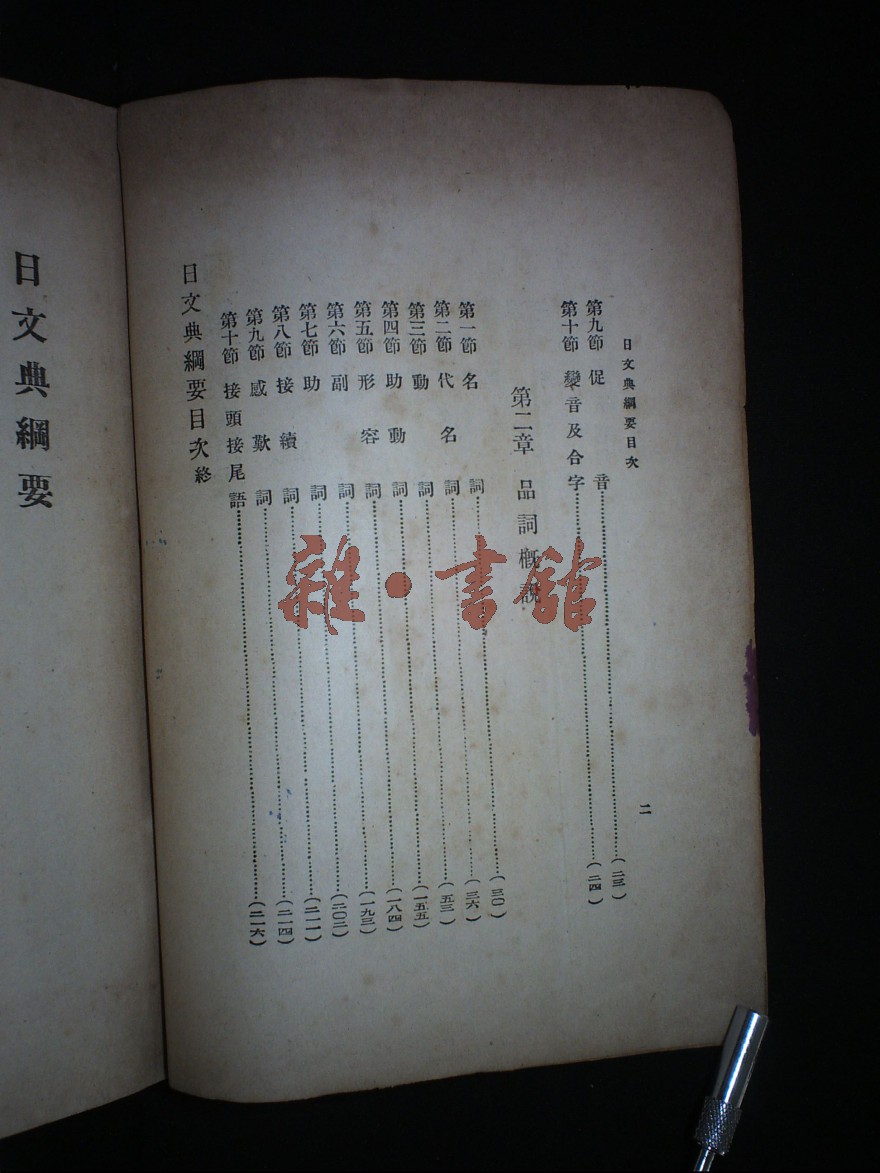 日文典綱要目次
二
第九節 促音……(二三)
第十節 變音及合字……(二四)
第二章 品詞概說
第一節 名詞……(三〇)
第二節 代名詞……(三六)
第三節 動詞……(五三)
第四節 助動詞……(一五五)
第五節 形容詞……(一八四)
第六節 副詞……(一九三)
第七節 助詞……(二〇二)
第八節 接續詞……(二一一)
第九節 感歎詞……(二一四)
第十節 接頭接尾語……(二一六)
日文典綱要目次終
日文典綱要
雜·書館